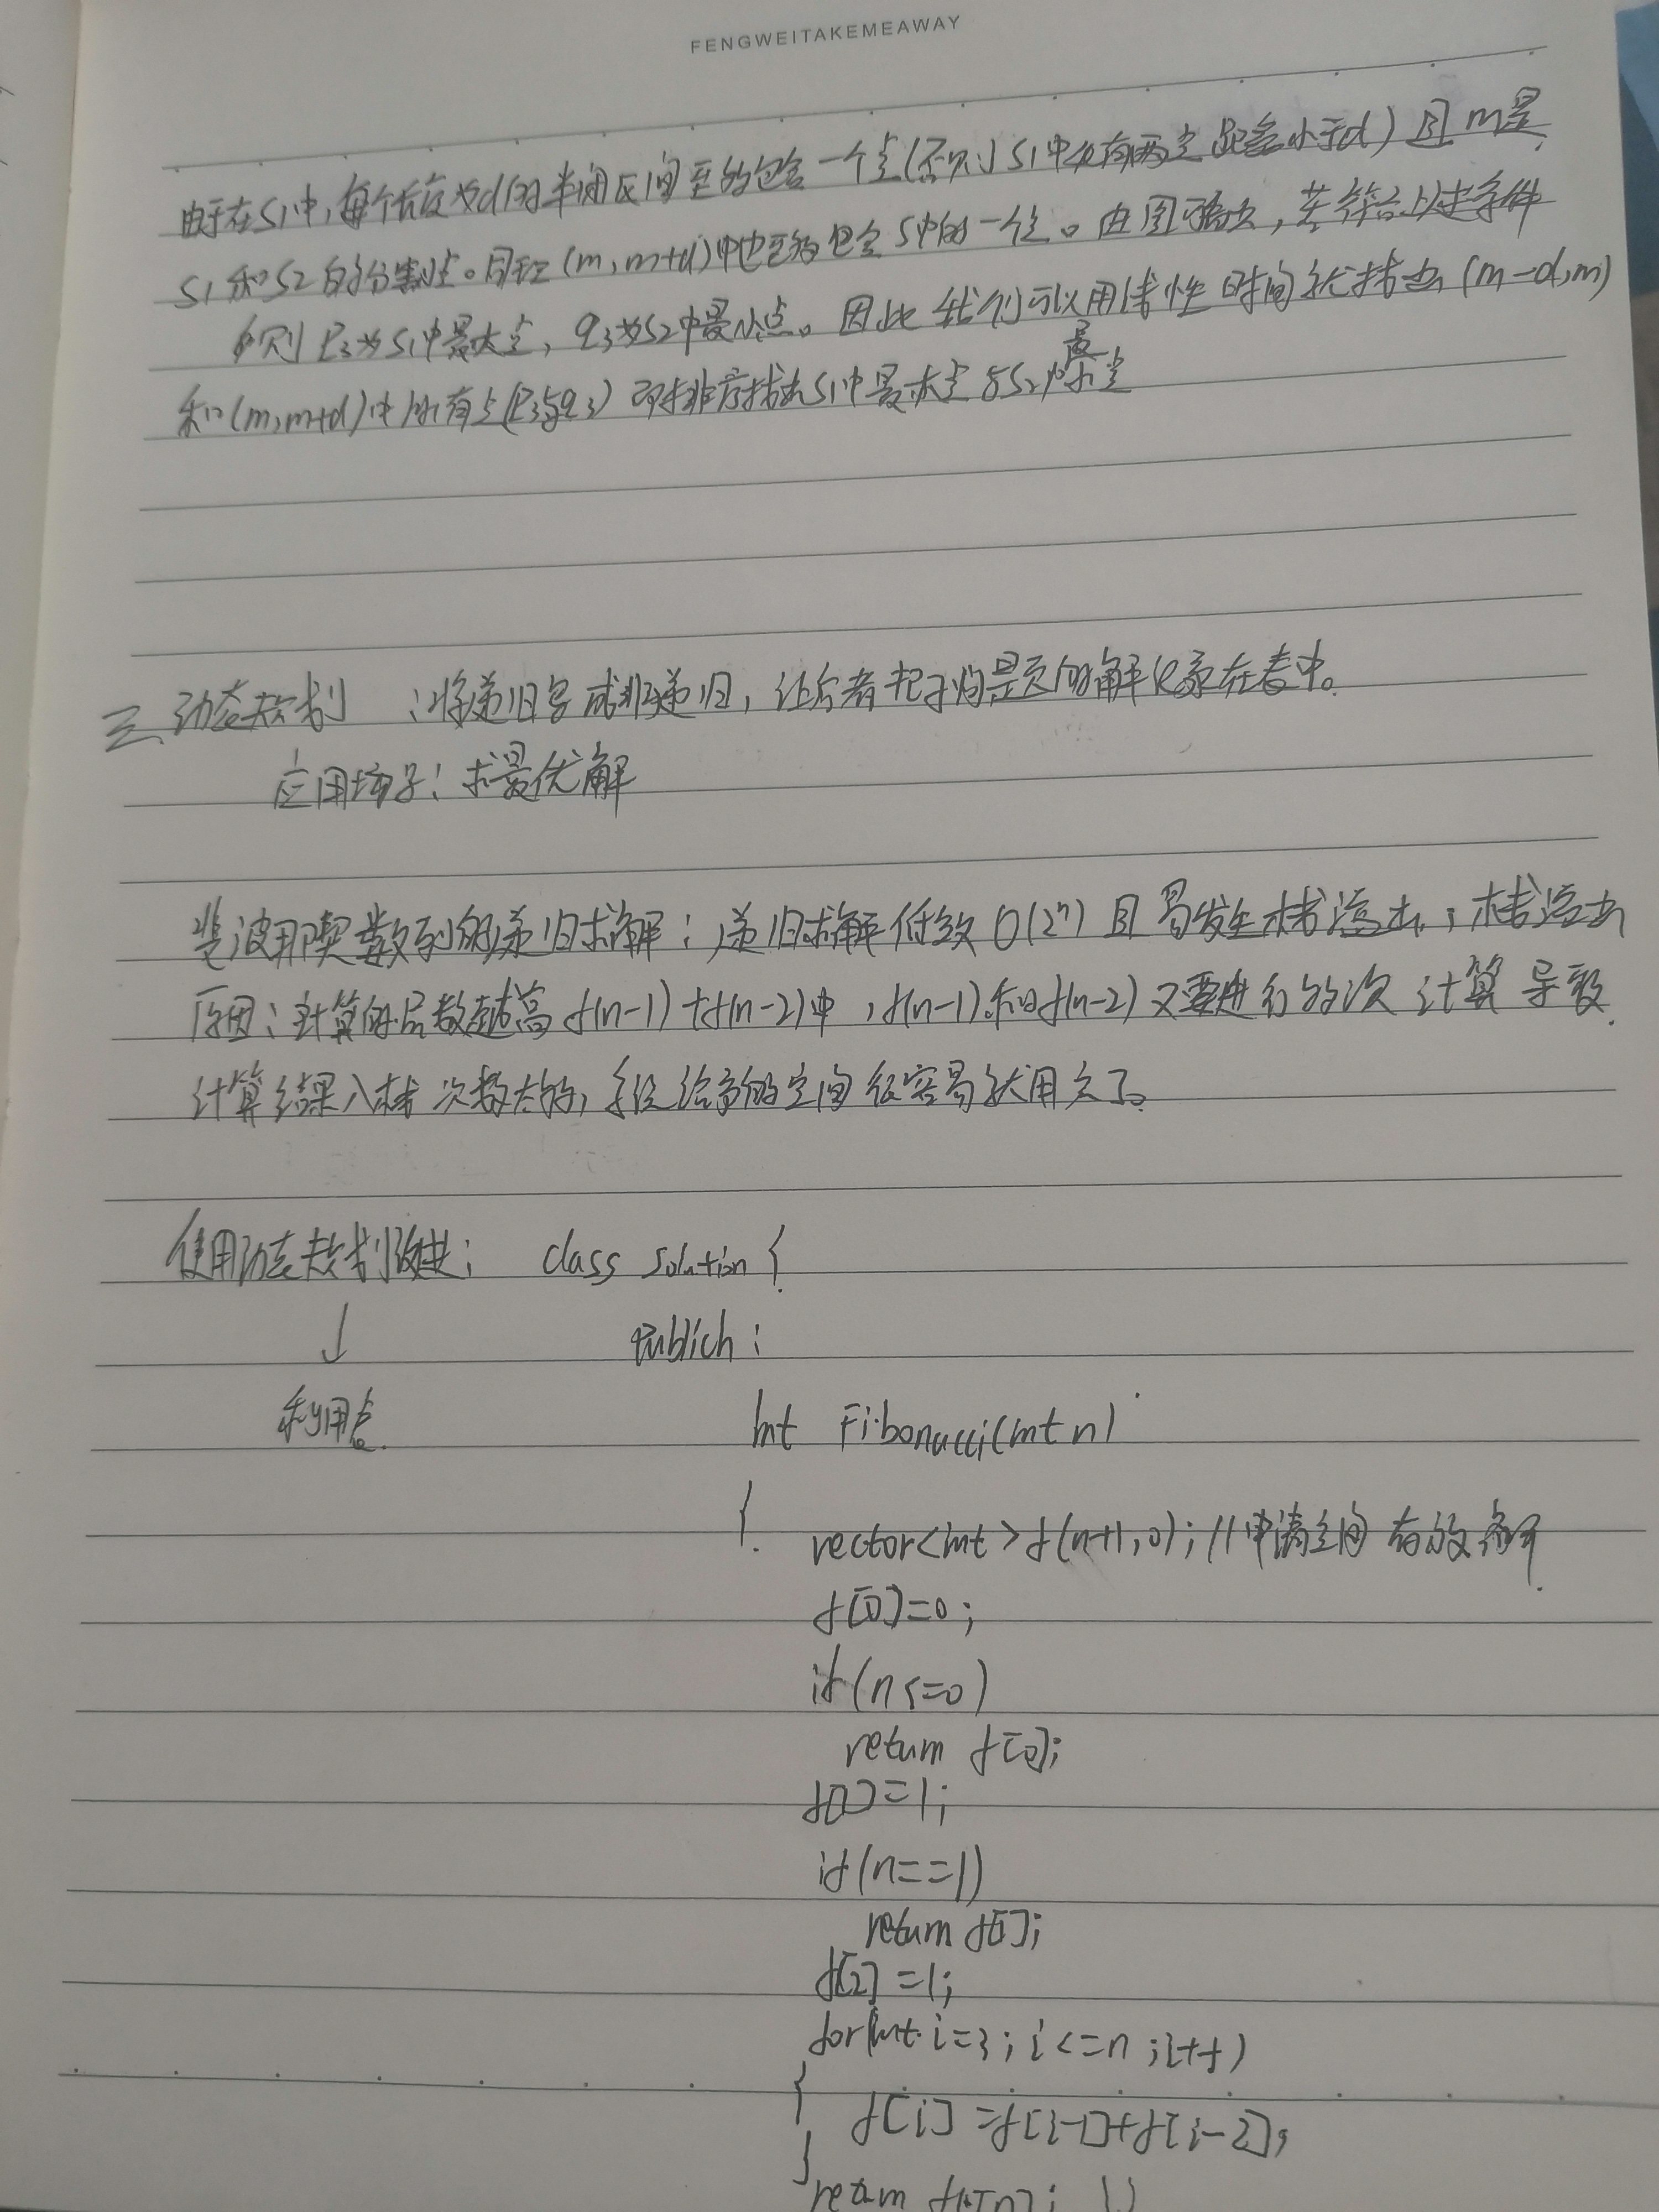 FENGWEITAKEMEAWAY
由于在S1中,每个长度为d的半闭区间至多包含一个点(否则S1中必有两点距离小于d)且m是
S1和S2的分割点。同理(m,m+d)中也至多包含S中的一个点。由图可看出,若符合上述条件
则P3为S1中最大点,q3为S2中最小点。因此我们可以用线性时间就找出(m-d,m)
和(m,m+d)中所有点(P3与q3)即排序找出S1中最大点与S2中最小点
三、动态规划 :将递归写成非递归,让后者把子问题的解记录在表中。
应用场子:求最优解
斐波那契数列的递归求解:递归求解低效O(2ⁿ)且易发生栈溢出;栈溢出
原因:计算的层数越高f(n-1)+f(n-2)中,f(n-1)和f(n-2)又要进行多次计算导致
计算结果入栈次数太多,给予的空间很容易就用完了。
使用动态规划改进: class Solution {
↓ publich:
利用表 int Fibonacci(int n)
{ vector<int>f(n+1,0);//申请空间
f[0]=0;
if(n<=0)
return f[0];
f[1]=1;
if(n==1)
return f[1];
f[2]=1;
for(int i=3;i<=n;i++)
{ f[i]=f[i-1]+f[i-2];
}
return f[n]; }}